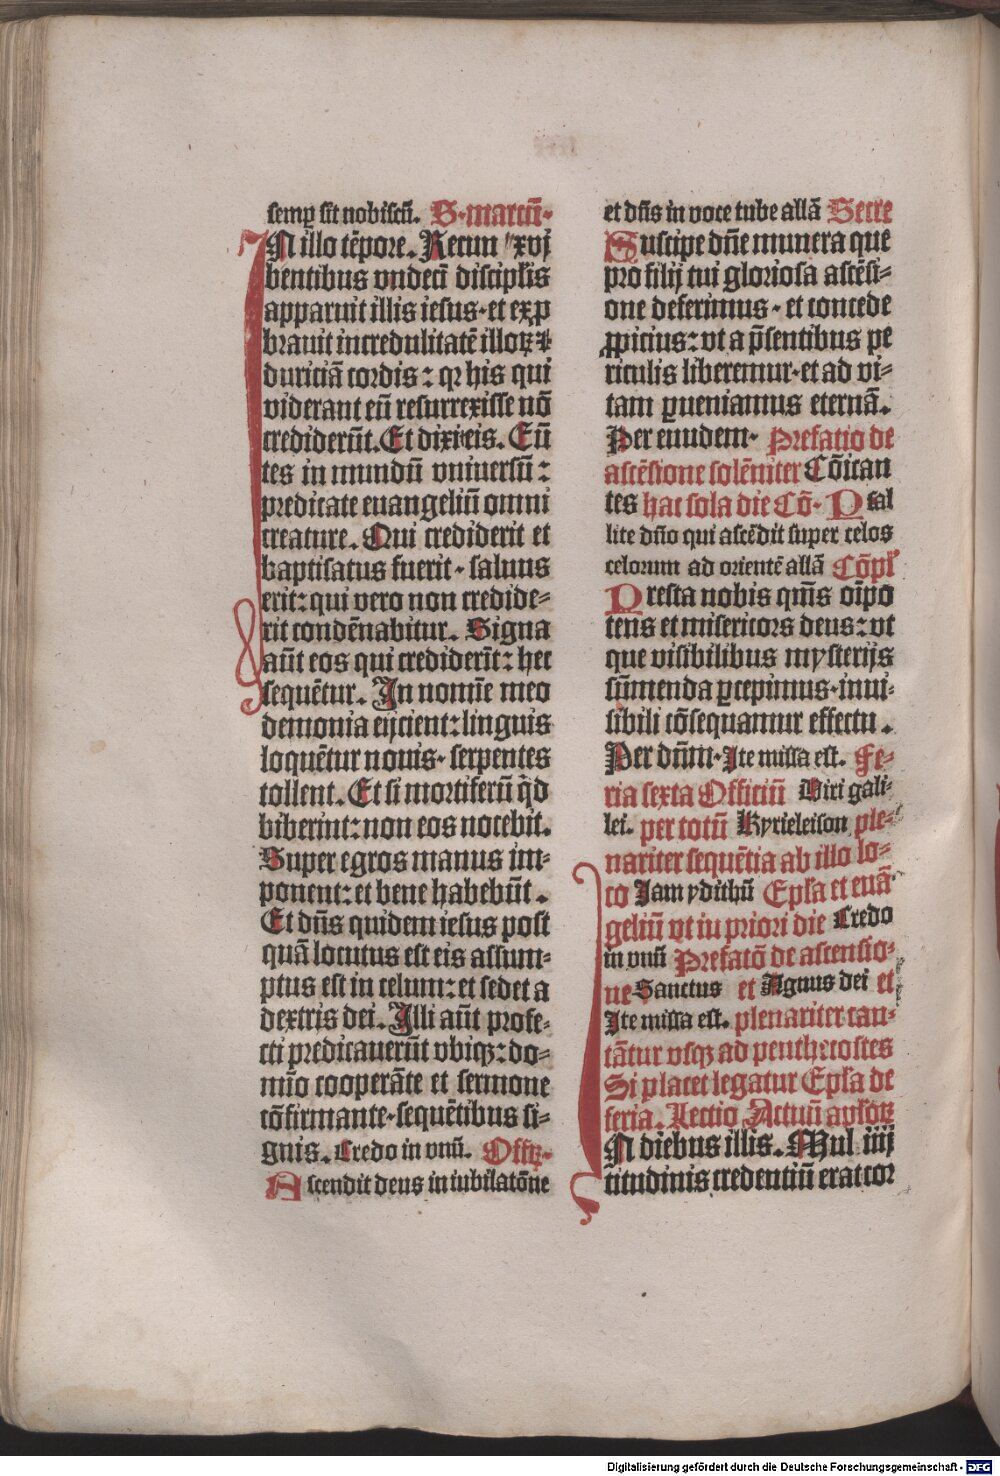 semꝑ sit nobiscū. S. marcū.
IN illo tēpore. Recum xvj
bentibus vndecī discipłis
apparuit illis iesus. et exp̱
brauit incredulitatē illoꝝ ⁊
duriciā cordis: qꝛ his qui
viderant eū resurrexisse nō
crediderūt. Et dixit eis. Eū
tes in mundū vniuersū:
predicate euangeliū omni
creature. Qui crediderit et
baptisatus fuerit. saluus
erit: qui vero non credide⸗
rit condēnabitur. Signa
aūt eos qui crediderīt: hec
sequētur. In nomīe meo
demonia eijcient: linguis
loquētur nouis. serpentes
tollent. Et si mortiferū qd̄
biberint: non eos nocebit.
Super egros manus im⸗
ponent: et bene habebūt.
Et dn̄s quidem iesus post
quā locutus est eis assum⸗
ptus est in celum: et sedet a
dextris dei. Illi aūt profe⸗
cti predicauerūt vbiqꝫ: do⸗
mīo cooperāte et sermone
cōfirmante. sequētibus si⸗
gnis. Credo in vnū. Offꝝ.
Ascendit deus in iubilatōne
et dn̄s in voce tube allā Secre
Suscipe dn̄e munera que
pro filij tui gloriosa ascēsi⸗
one deferimus. et concede
ꝓpicius: vt a p̄sentibus pe
riculis liberemur. et ad vi⸗
tam ꝑueniamus eternā.
Per eundem. Prefatio de
ascēsione solēniter Cōican
tes hac sola die Cō. Psal
lite dn̄o qui ascēdit super celos
celorum ad orientē allā Cōpł
Presta nobis qm̄s oīpo
tens et misericors deus: vt
que visibilibus mysterijs
sūmenda ꝑcepimus. inui⸗
sibili cōsequamur effectu.
Per dn̄m. Ite missa est. Fe⸗
ria sexta Officiū Viri gali⸗
lei. per totū Kyrieleison ple⸗
nariter sequētia ab illo lo⸗
co Iam ydithū Epła et euā
geliū vt in priori die Credo
in vnū Prefatō de ascensio⸗
ne Sanctus et Agnus dei et
Ite missa est. plenariter can⸗
tātur vsqꝫ ad penthecostes
Si placet legatur Epła de
feria. Lectio Actuū apłoꝝ
IN diebus illis. Mul iiij
titudinis credentiū erat cor
Digitalisierung gefördert durch die Deutsche Forschungsgemeinschaft - DFG